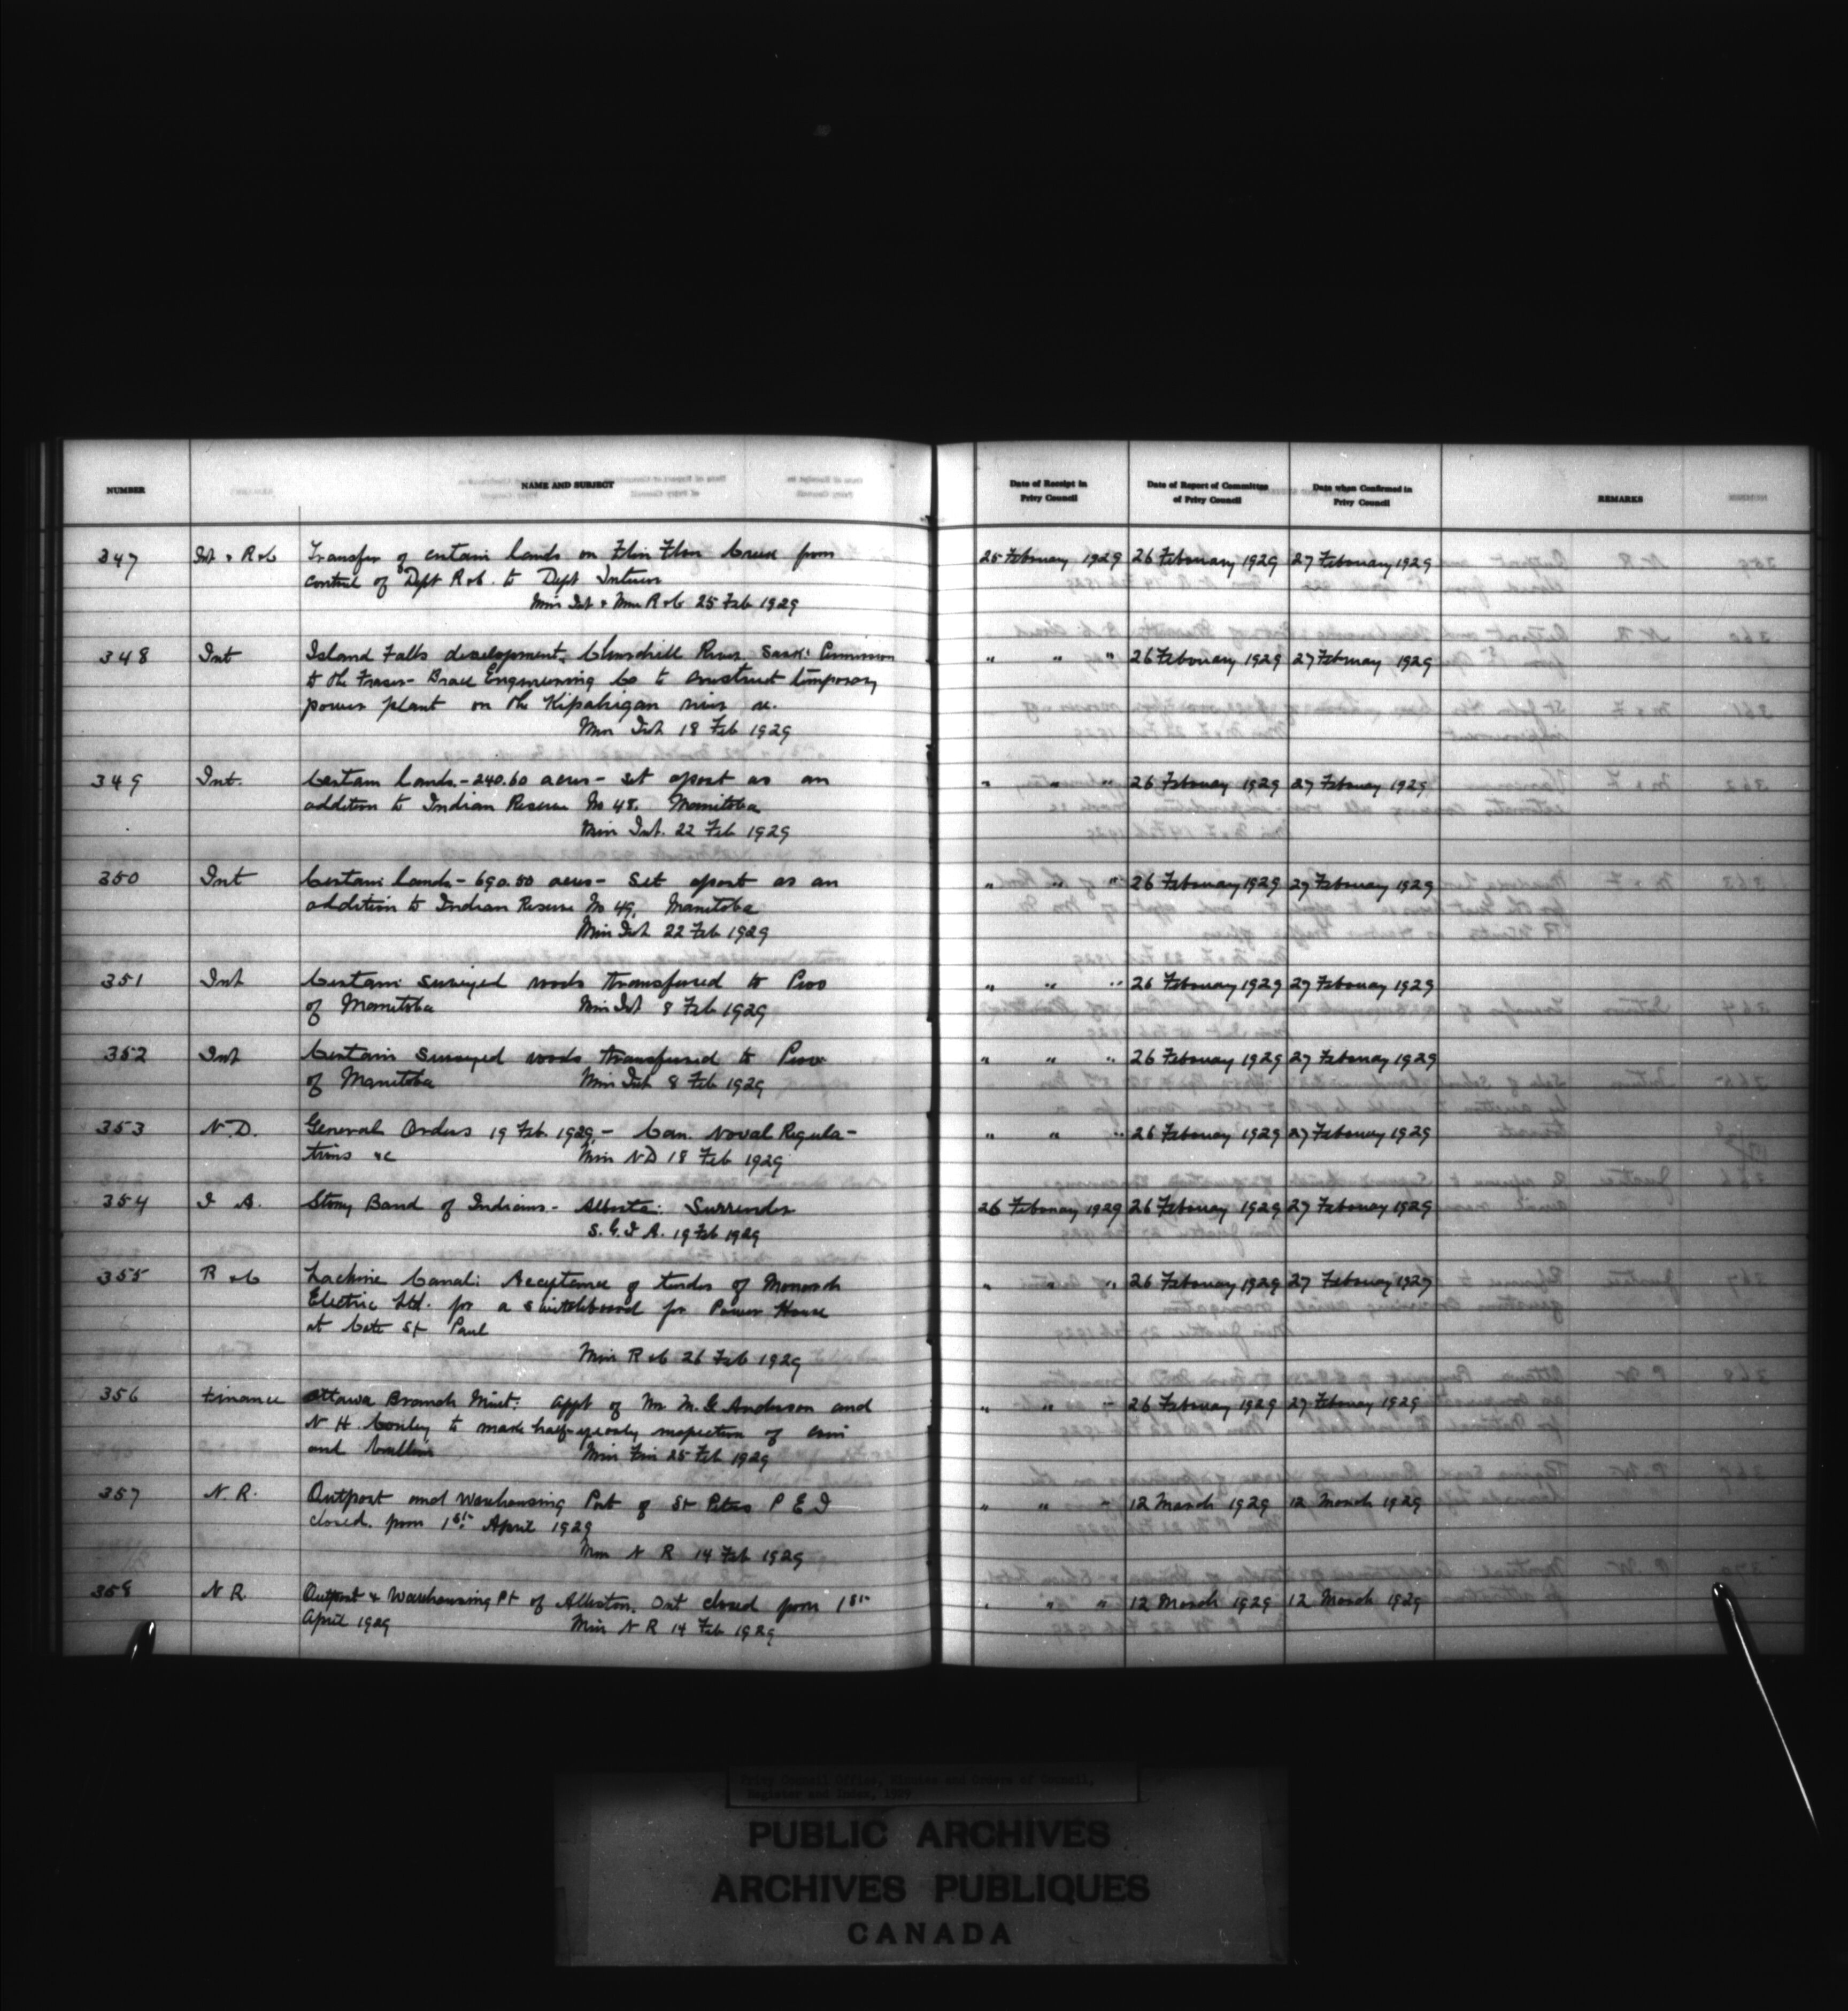 NUMBER
NAME AND SUBJECT
Date of Receipt in Privy Council
Date of Report of Committee of Privy Council
Date when Confirmed in Privy Council
REMARKS
347 Int & R & C Transfer of certain lands on Flin Flon Creek from 25 February 1929 26 February 1929 27 February 1929
control of Dept R & C. to Dept Interior
Min Int & Min R & C 25 Feb 1929
348 Int Island Falls development, Churchill River, Sask: Permission " " " 26 February 1929 27 February 1929
to the Fraser-Brace Engineering Co to construct temporary
power plant on the Kipahigan river &c.
Min Int 18 Feb 1929
349 Int. Certain lands - 240.60 acres - set apart as an " " " 26 February 1929 27 February 1929
addition to Indian Reserve No 48. Manitoba
Min Int. 22 Feb 1929
350 Int Certain lands - 690.50 acres - set apart as an " " " 26 February 1929 27 February 1929
addition to Indian Reserve No 49, Manitoba
Min Int 22 Feb 1929
351 Int Certain surveyed roads transferred to Prov " " " 26 February 1929 27 February 1929
of Manitoba Min Int 8 Feb 1929
352 Int Certain surveyed roads transferred to Prov " " " 26 February 1929 27 February 1929
of Manitoba Min Int 8 Feb 1929
353 N.D. General Orders 19 Feb. 1929, - Can. Naval Regula- " " " 26 February 1929 27 February 1929
tions &c Min ND 18 Feb 1929
354 I A. Stony Band of Indians - Alberta: Surrender 26 February 1929 26 February 1929 27 February 1929
S. G. I A. 19 Feb 1929
355 R & C Lachine Canal: Acceptance of tender of Monarch " " " 26 February 1929 27 February 1929
Electric Ltd. for a switchboard for Power House
at Cote St Paul
Min R & C 26 Feb 1929
356 Finance Ottawa Branch Mint: appt of Mr. M. G Anderson and " " " 26 February 1929 27 February 1929
N H. Conley to make half-yearly inspection of coin
and bullion Min Fin 25 Feb 1929
357 N. R. Outport and Warehousing Port of St Peters P E I " " " 12 March 1929 12 March 1929
closed from 1st April 1929
Min N R 14 Feb 1929
358 N R. Outport & Warehousing Pt of Alliston. Ont closed from 1st " " " 12 March 1929 12 March 1929
April 1929 Min N R 14 Feb 1929
Privy Council Office, Minutes and Orders of Council,
Register and Index, 1929
PUBLIC ARCHIVES
ARCHIVES PUBLIQUES
CANADA